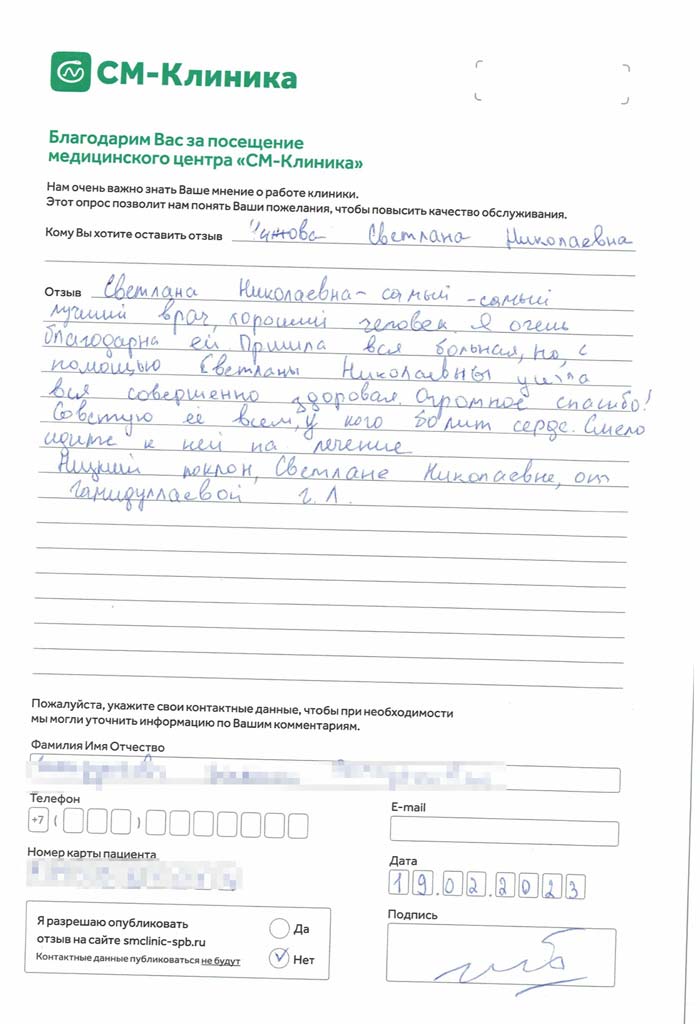 СМ-Клиника
Благодарим Вас за посещение
медицинского центра «СМ-Клиника»
Нам очень важно знать Ваше мнение о работе клиники.
Этот опрос позволит нам понять Ваши пожелания, чтобы повысить качество обслуживания.
Кому Вы хотите оставить отзыв Светлана Николаевна
Отзыв Светлана Николаевна - самый - самый
лучший врач, хороший человек. Я очень
благодарна ей. Пришла вся больная, но, с
помощью Светланы Николаевны ушла
вся совершенно здоровая. Огромное спасибо!
Советую её всем, у кого болит сердце. Смело
идите к ней на лечение
Низкий поклон, Светлане Николаевне, от
Гамидуллаевой Г. Л.
Пожалуйста, укажите свои контактные данные, чтобы при необходимости
мы могли уточнить информацию по Вашим комментариям.
Фамилия Имя Отчество
Телефон
+7 ( )
E-mail
Номер карты пациента
Дата
19.02.2023
Я разрешаю опубликовать
отзыв на сайте smclinic-spb.ru
Контактные данные публиковаться не будут
Да
Нет
Подпись